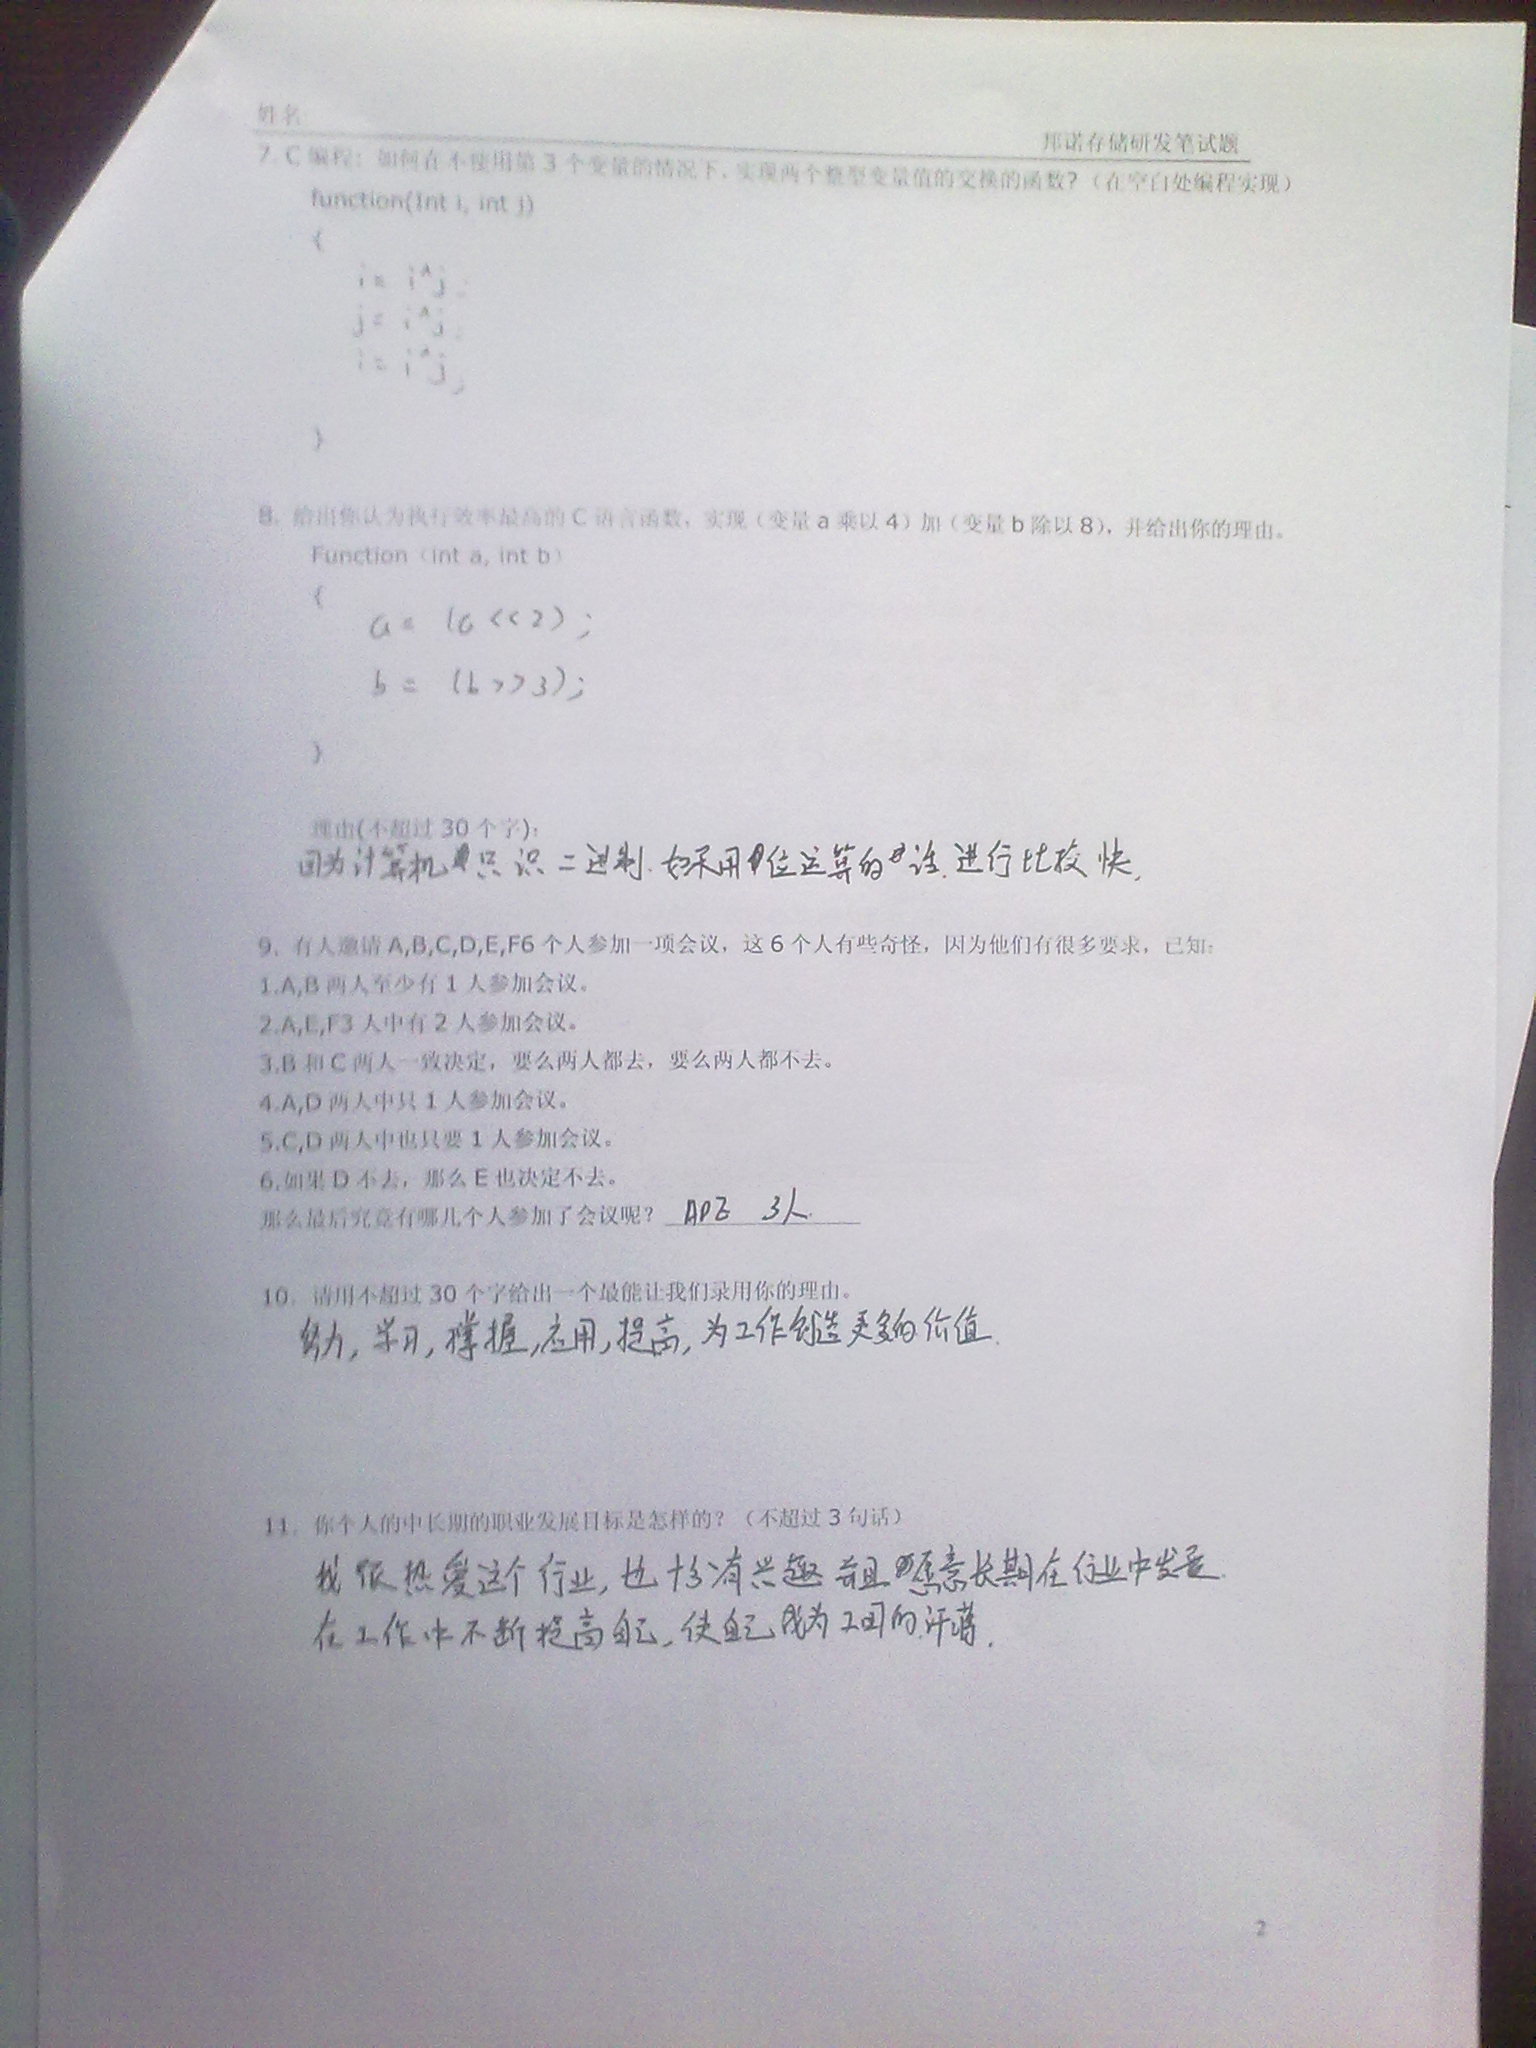 姓名
邦诺存储研发笔试题
7. C 编程：如何在不使用第 3 个变量的情况下，实现两个整型变量值的交换的函数？（在空白处编程实现）
function(Int i, int j)
{
i = i^j;
j = i^j;
i = i^j;
}
8. 给出你认为执行效率最高的 C 语言函数，实现（变量 a 乘以 4）加（变量 b 除以 8），并给出你的理由。
Function（int a, int b）
{
a = (a << 2);
b = (b >> 3);
}
理由(不超过 30 个字)：
因为计算机只识二进制.如采用位运算的话.进行比较快.
9. 有人邀请 A,B,C,D,E,F6 个人参加一项会议，这 6 个人有些奇怪，因为他们有很多要求，已知：
1.A,B 两人至少有 1 人参加会议。
2.A,E,F3 人中有 2 人参加会议。
3.B 和 C 两人一致决定，要么两人都去，要么两人都不去。
4.A,D 两人中只 1 人参加会议。
5.C,D 两人中也只要 1 人参加会议。
6.如果 D 不去，那么 E 也决定不去。
那么最后究竟有哪几个人参加了会议呢？ 3人.
10. 请用不超过 30 个字给出一个最能让我们录用你的理由。
努力, 学习, 掌握, 应用, 提高, 为工作创造更多的价值.
11. 你个人的中长期的职业发展目标是怎样的？（不超过 3 句话）
我很热爱这个行业, 也十分有兴趣 并且愿意长期在行业中发展.
在工作中不断提高自己, 使自己成为公司的
2